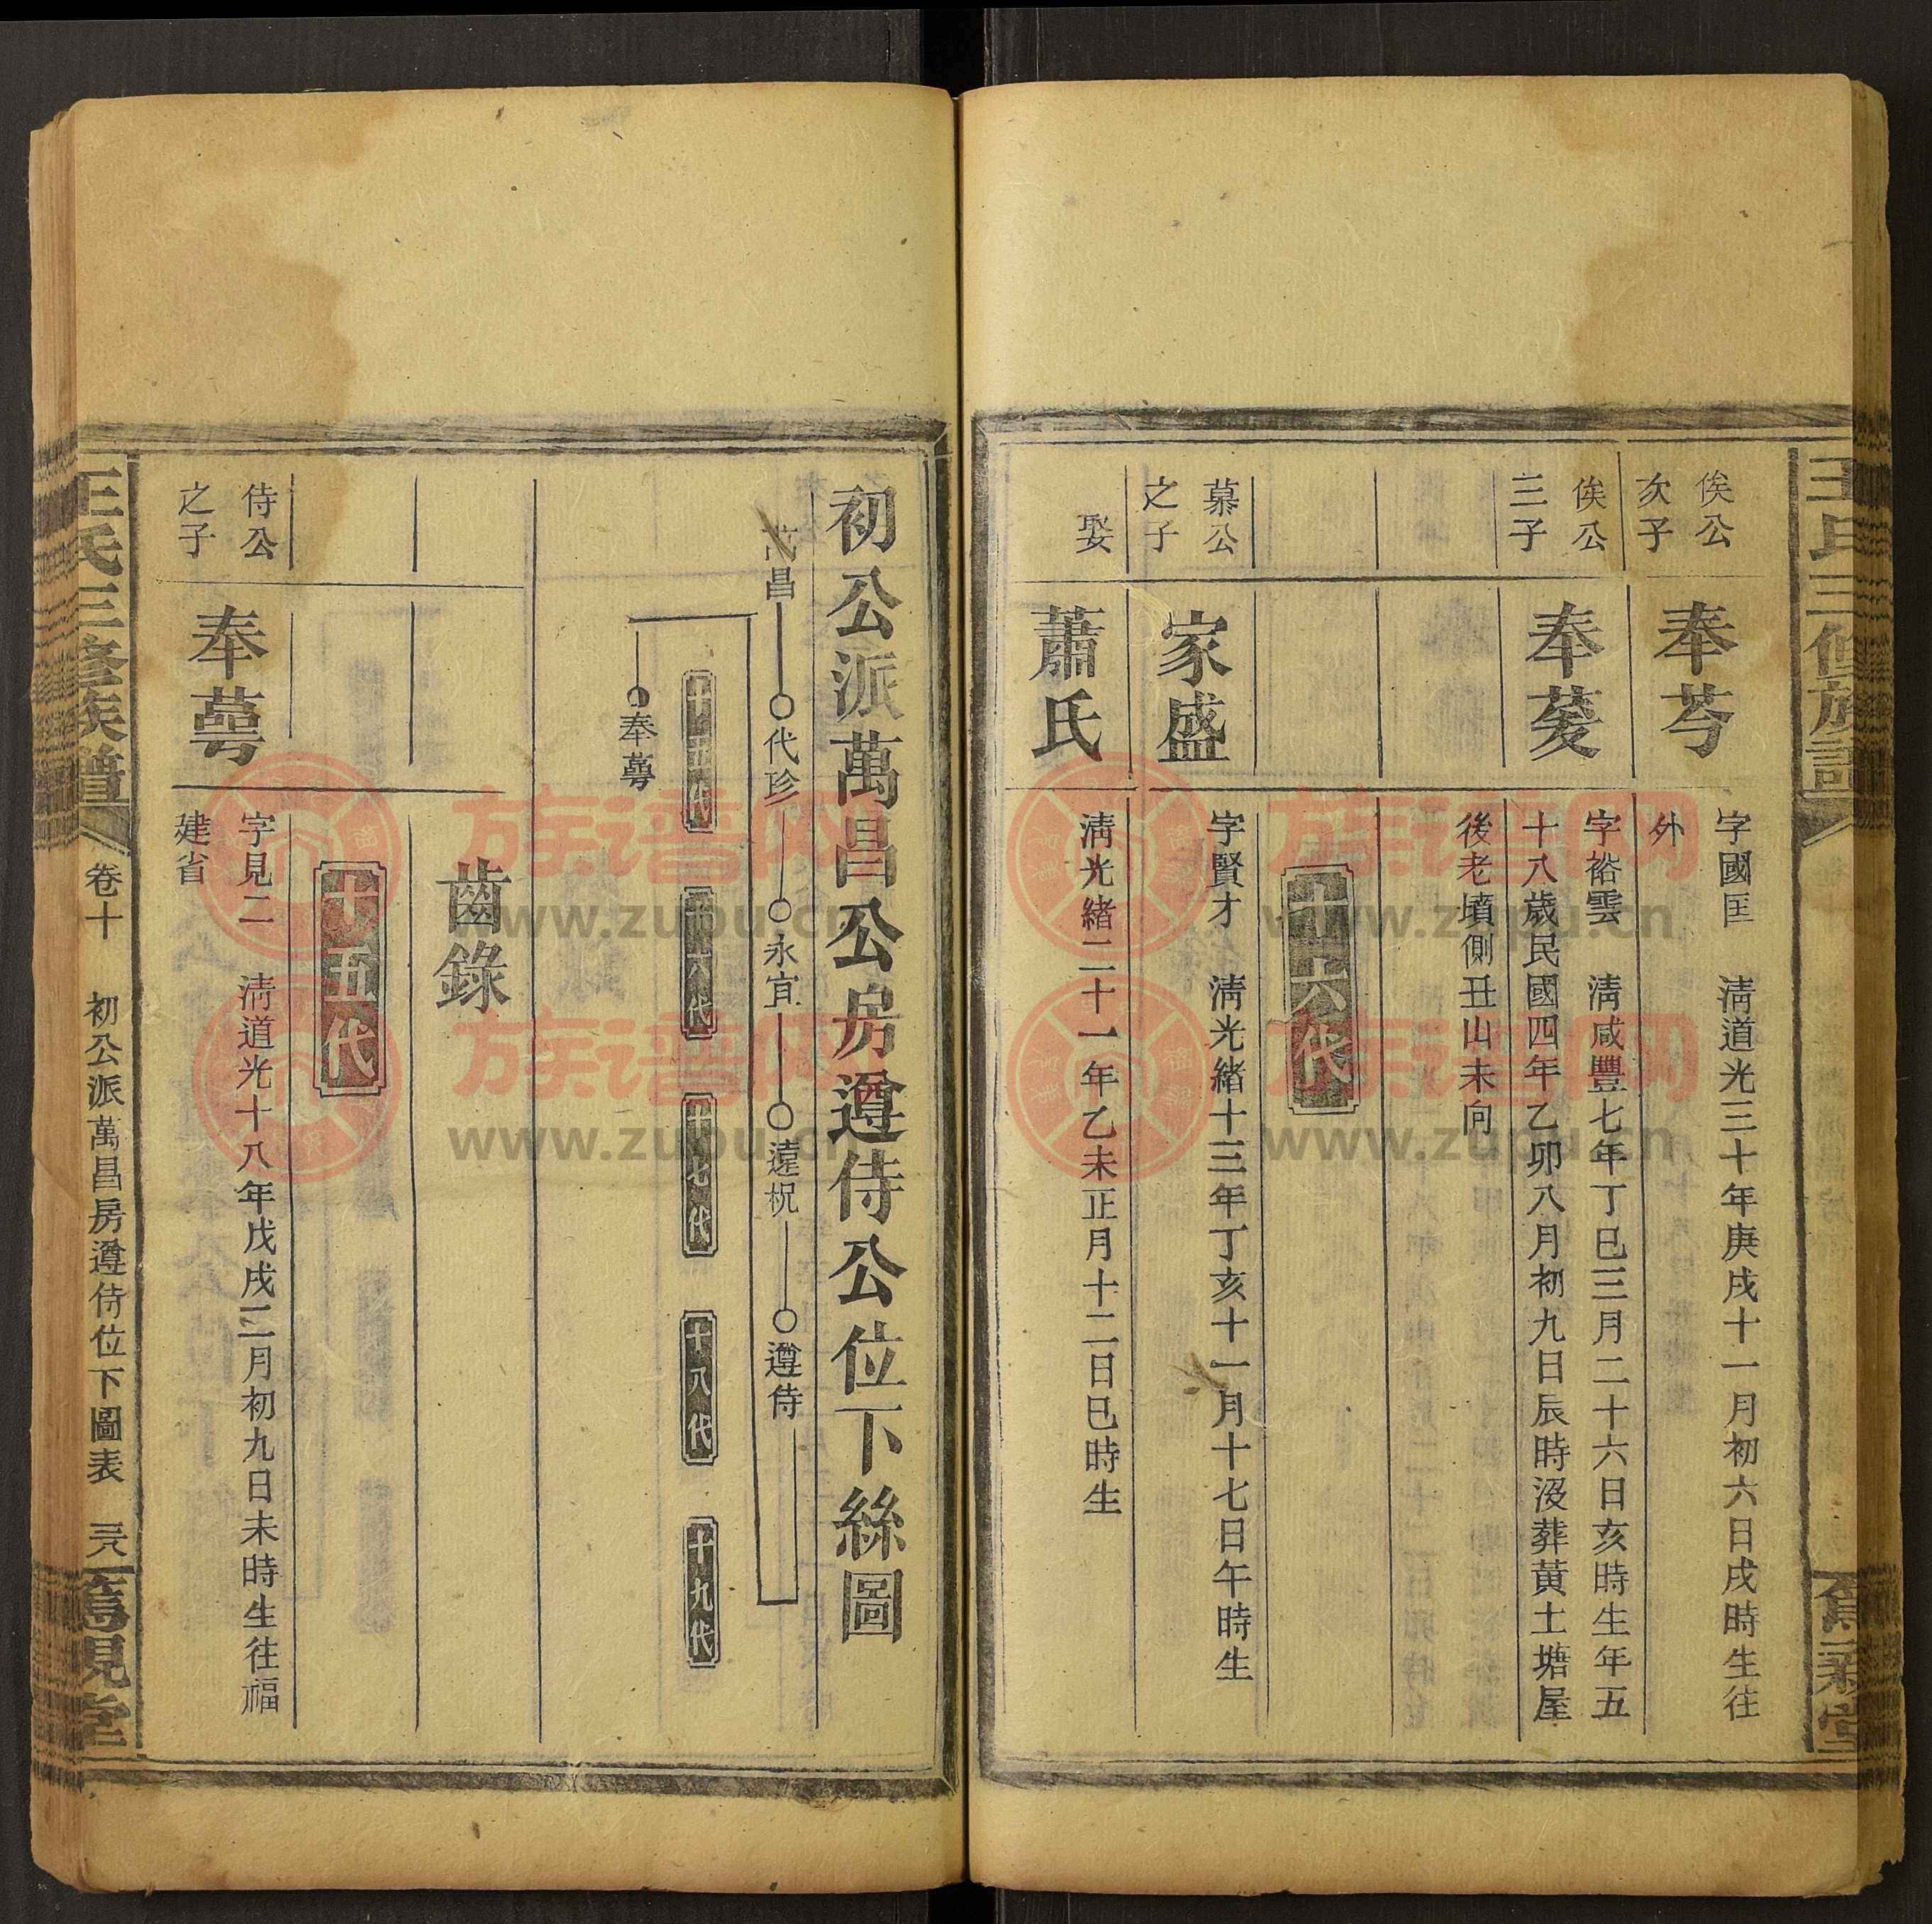 王氏三修族譜
俟公
次子
奉芩
字國匡 清道光三十年庚戌十一月初六日戌時生往
外
俟公
三子
奉菱
字裕雲 清咸豐七年丁巳三月二十六日亥時生年五
十八歲民國四年乙卯八月初九日辰時沒葬黃土塘屋
後老墳側丑山未向
十六代
慕公
之子
家盛
字賢才 清光緒十三年丁亥十一月十七日午時生
娶
蕭氏
清光緒二十一年乙未正月十二日巳時生
初公派萬昌公房遵侍公位下絲圖
萬昌
代珍
永宜
遠柷
遵侍
十五代
十六代
十七代
十八代
十九代
奉萼
齒錄
十五代
侍公
之子
奉萼
字見二 清道光十八年戊戌二月初九日未時生往福
建省
王氏三修族譜
卷十
初公派萬昌房遵侍位下圖表
族谱网
www.zupu.cn
族谱网
www.zupu.cn
族谱网
www.zupu.cn
族谱网
www.zupu.cn